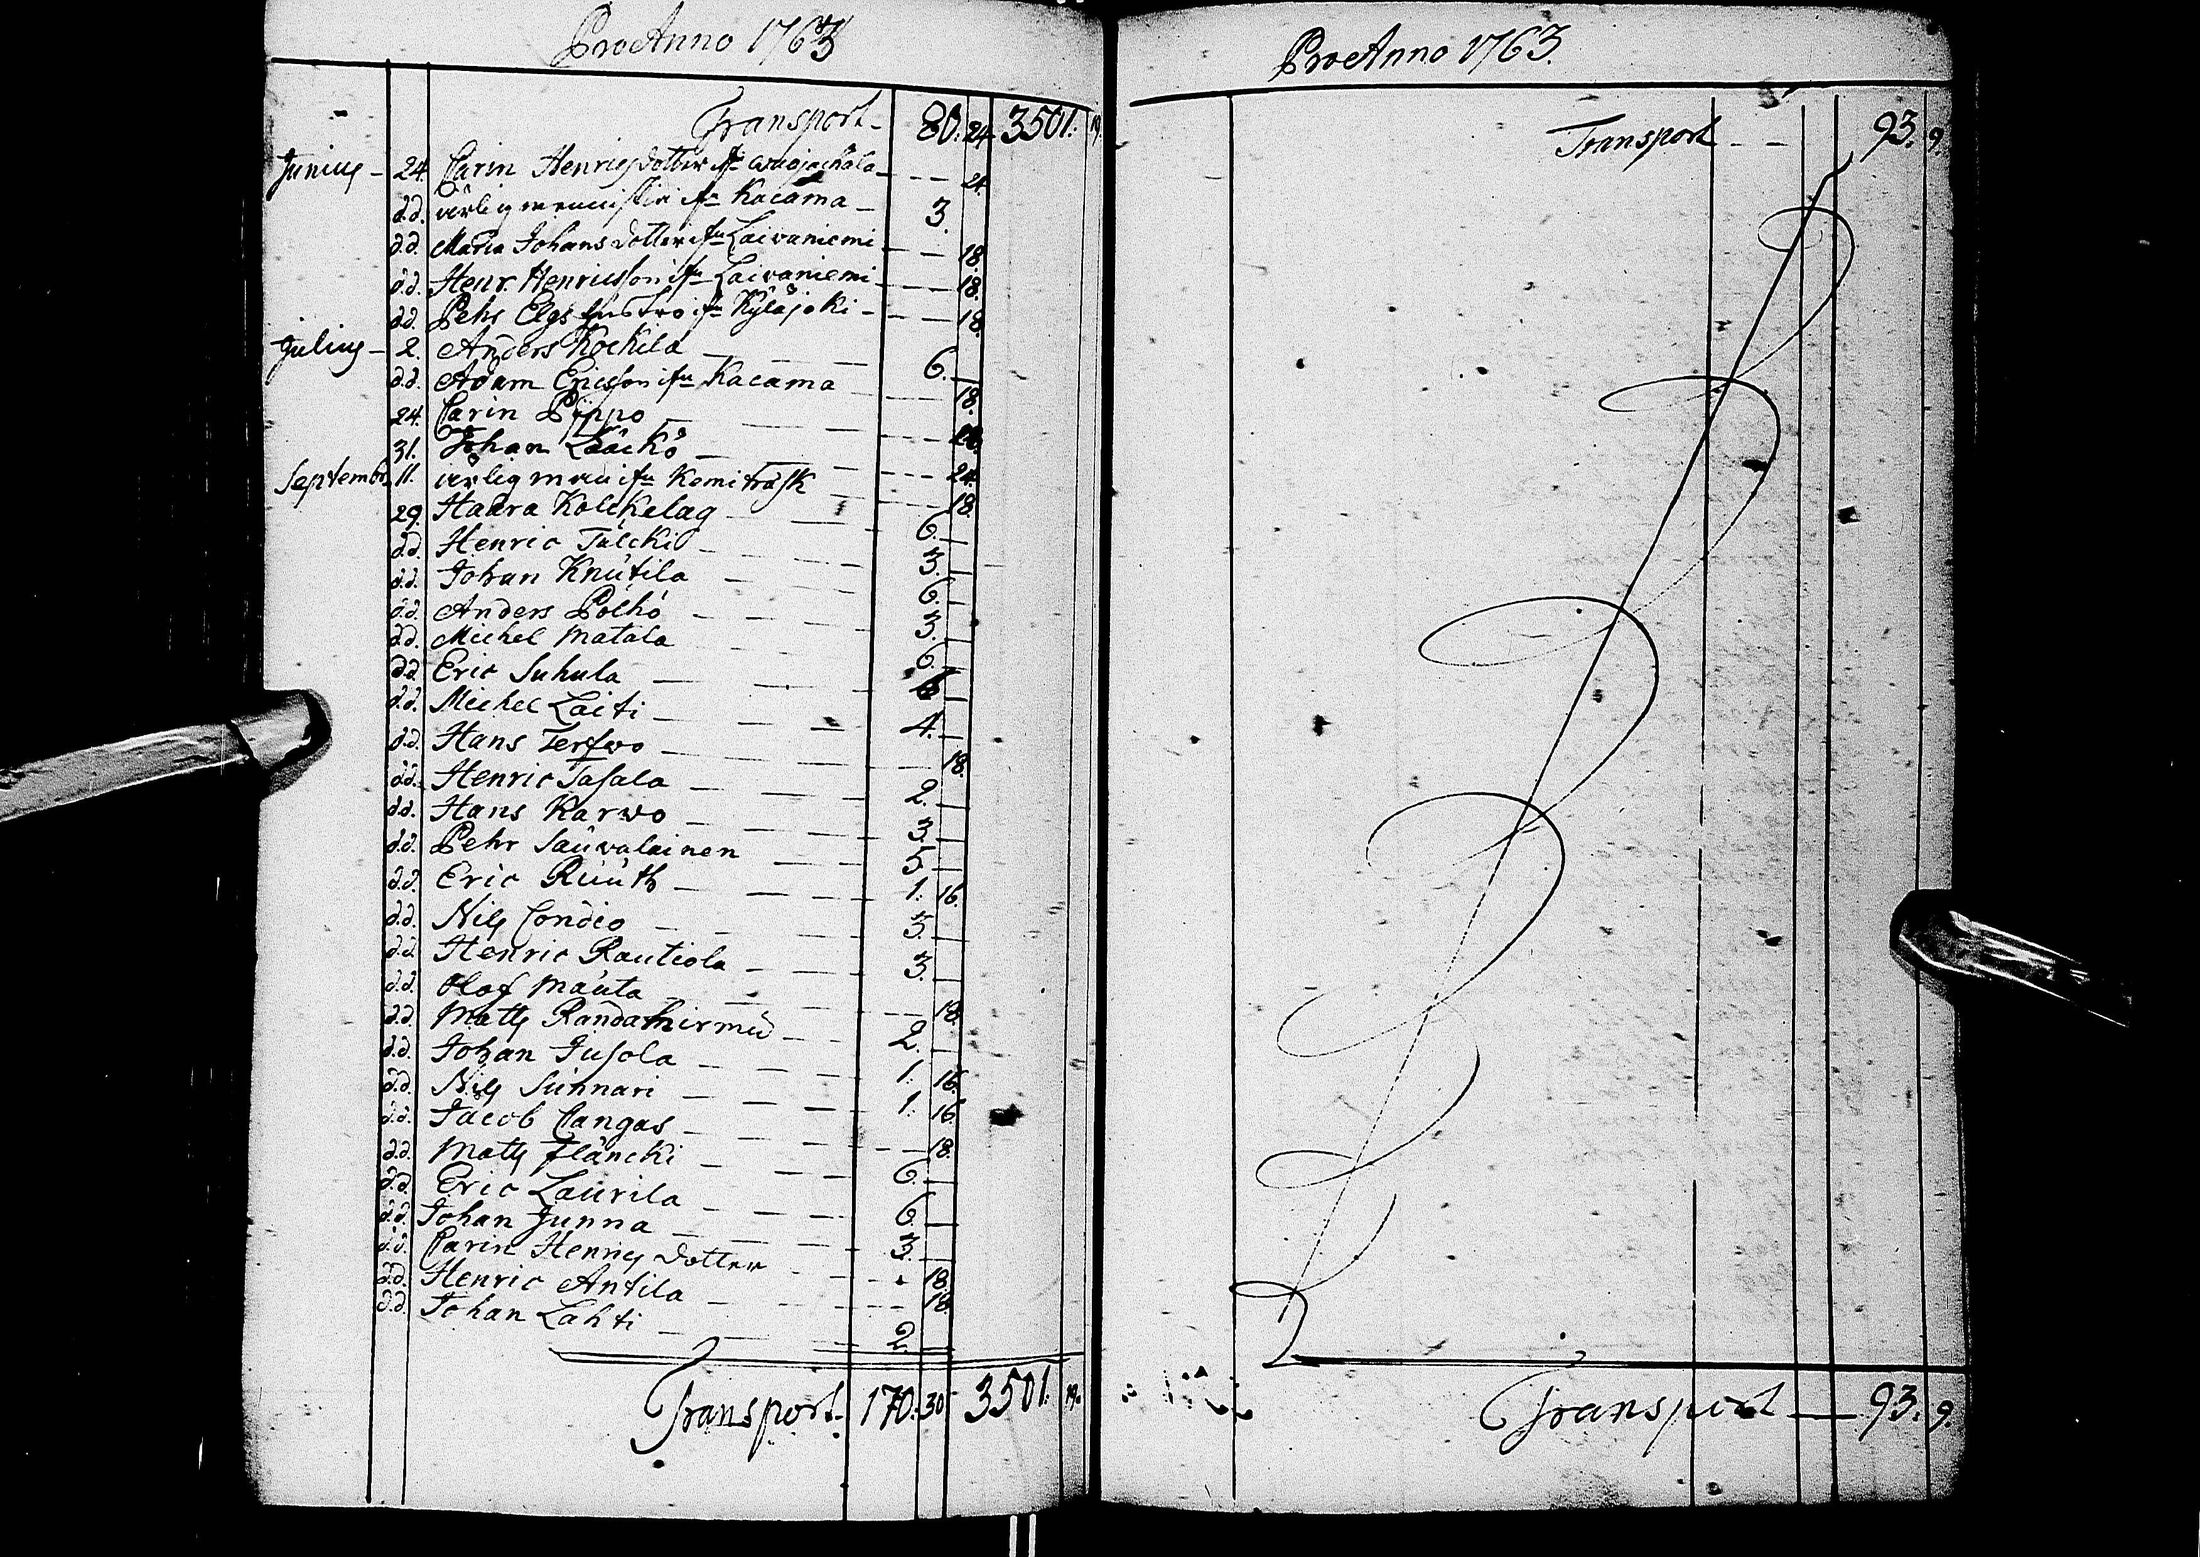 Pro Anno 1763
Transport - 80. 24 3501. 19.
Junius - 24. Carin Henrics dotter ifr - - - 24.
d.d. ärlig mennistia ifr Kacama - 3.
d.d. Maria Johans dotter ifr Laivaniemi - - - 18.
d.d. Henr. Henricsson ifr Laivaniemi - - - 18.
d.d. Pehr Elgs hustro ifr Kyläjoki - - - 18.
Julius - 2. Anders Kockila - - - 6. -
d.d. Adam Ericsson ifr Kacama - - - 18.
24. Carin Pippo - - - 18.
31. Johan Lääckö - - - 24.
Septembr. 11. ärlig man ifr Kemi träsk - - - 18.
29. Haara Kolckelag - - - 6. -
d.d. Henric Tulcki - - - 3. -
d.d. Johan Knutila - - - 6. -
d.d. Anders Pölhö - - - 3. -
d.d. Michel Matala - - - 6. -
d.d. Eric Suhula - - - 6. -
d.d. Michel Laiti - - - 4. -
d.d. Hans Terfwo - - - 18.
d.d. Henric Tasala - - - 2. -
d.d. Hans Karwo - - - 3. -
d.d. Pehr Sauvalainen - - - 5. -
d.d. Eric Ruuth - - - 1. 16.
d.d. Nils Condio - - - 3. -
d.d. Henric Rautiola - - - 3. -
d.d. Olof Mauta - - - 18.
d.d. Matts - - - 2. -
d.d. Johan Jusola - - - 1. 16.
d.d. Nils Sunnari - - - 1. 16.
d.d. Jacob Cangas - - - 18.
d.d. Matts Fläncki - - - 6. -
d.d. Eric Laurila - - - 6. -
d.d. Johan Junna - - - 3. -
d.d. Carin Henrics dotter - - - 18.
d.d. Henric Antila - - - 18.
d.d. Johan Lahti - - - 2.
Transport - 170. 30 3501. 19.
Pro Anno 1763.
Transport - - 93. 9.
Transport - 93. 9.